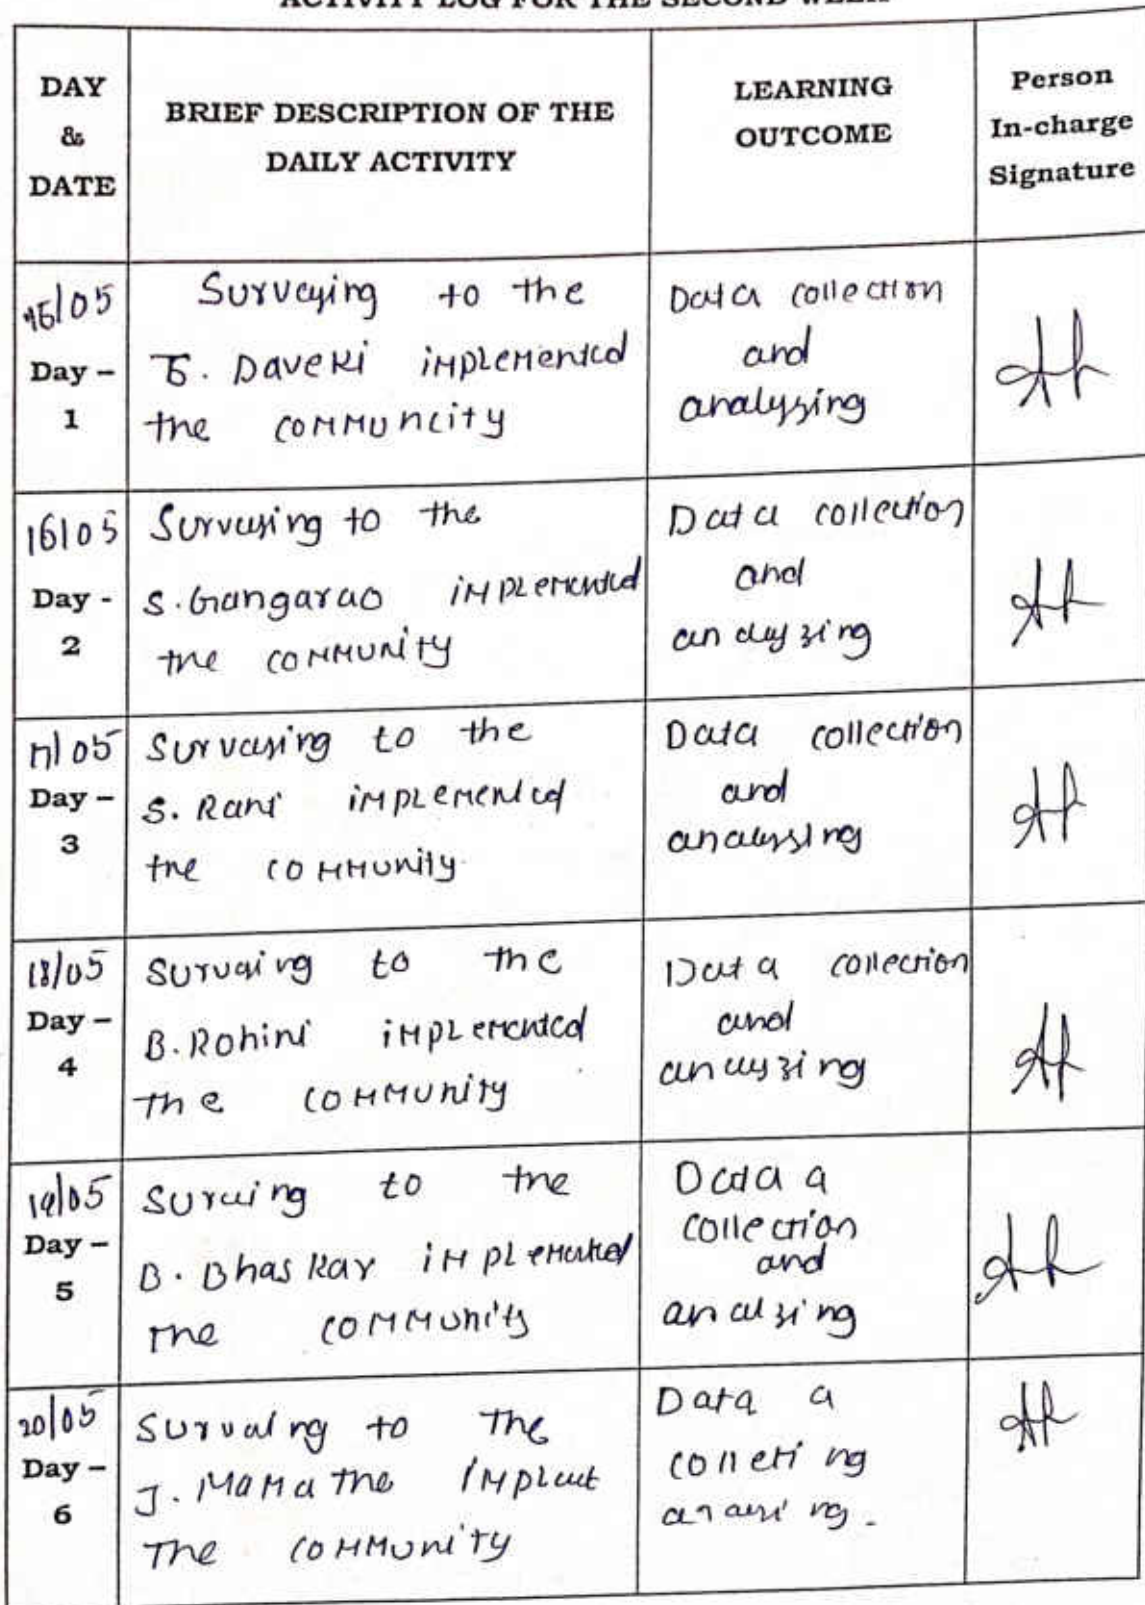 ACTIVITY LOG FOR THE SECOND WEEK
DAY & DATE
BRIEF DESCRIPTION OF THE DAILY ACTIVITY
LEARNING OUTCOME
Person In-charge Signature
15/05
Day – 1
Surveying to the
Daveki implemented
the communcity
Data collection
and
analysing
16/05
Day - 2
Survesing to the
S. Gangarao implemented
the community
Data collection
and
analyzing
17/05
Day – 3
Survaying to the
S. Rani implemented
the community
Data collection
and
analyssing
18/05
Day – 4
Survaing to the
B. Rohini implemented
the community
Data collection
and
analyzing
19/05
Day – 5
to the
B. Bhaskar implemented
the community
Data a
collection
and
analzing
20/05
Day – 6
Survaing to the
J. Mamatha
The community
Data a